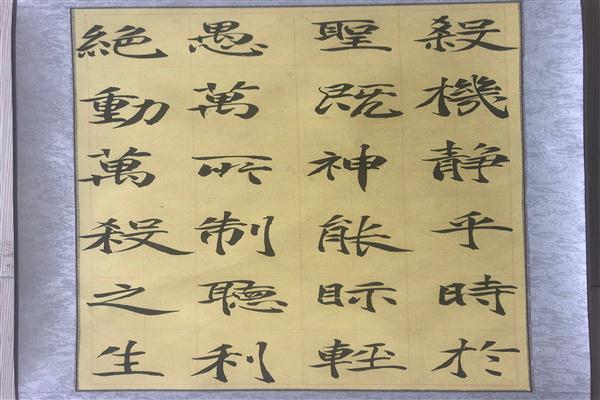 殺機静乎時於
聖既神能眎輕
愚萬所制聽利
絶動萬殺之生